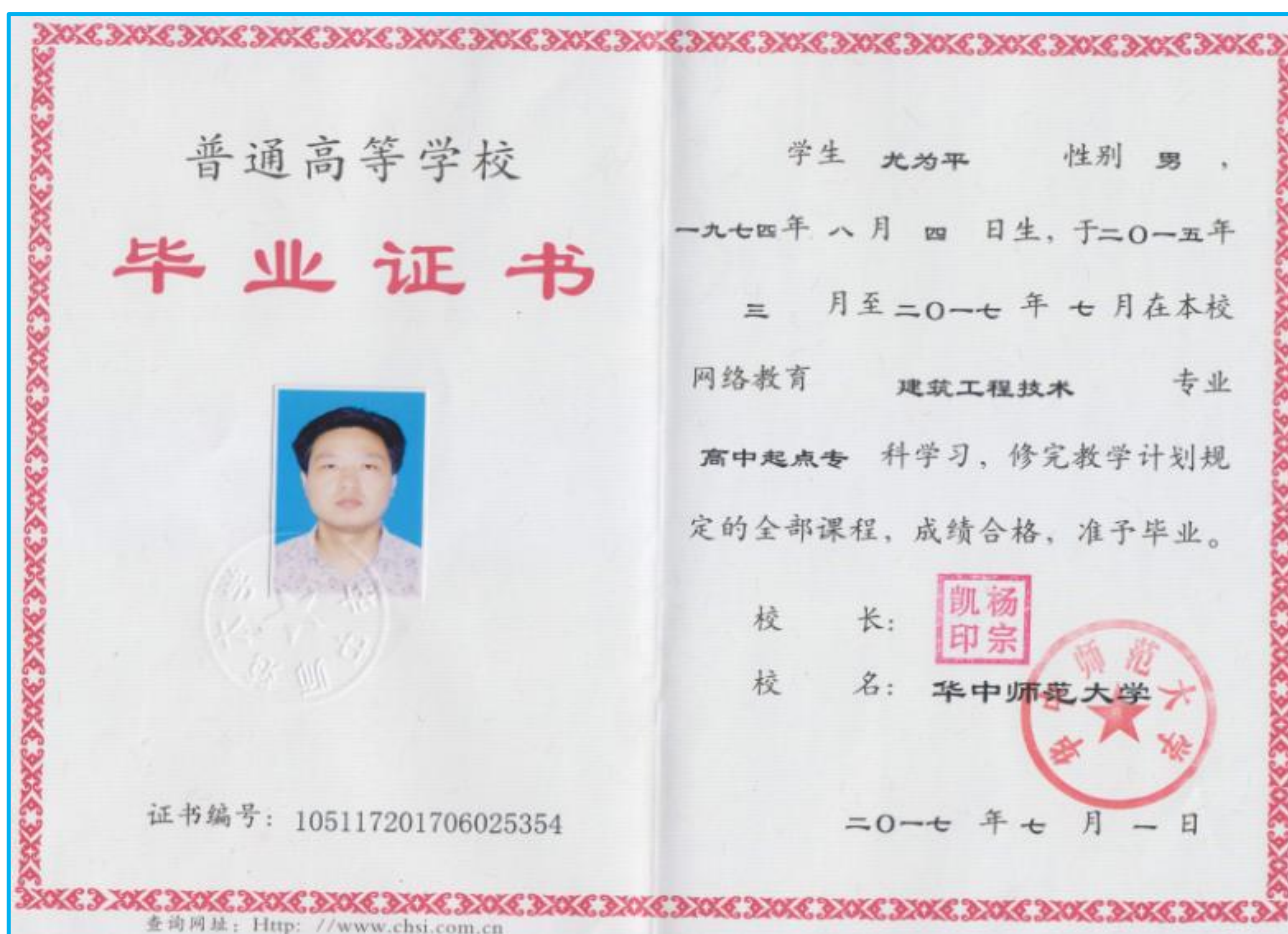 普通高等学校
毕业证书
证书编号：105117201706025354
查询网址：Http: //www.chsi.com.cn
学生 尤为平 性别 男，
一九七四年 八 月 四 日生，于二〇一五年
三 月至 二〇一七 年 七 月在本校
网络教育 建筑工程技术 专业
高中起点专 科学习，修完教学计划规
定的全部课程，成绩合格，准予毕业。
校 长：
杨宗凯印
校 名：华中师范大学
华中师范大学
二〇一七 年 七 月 一 日